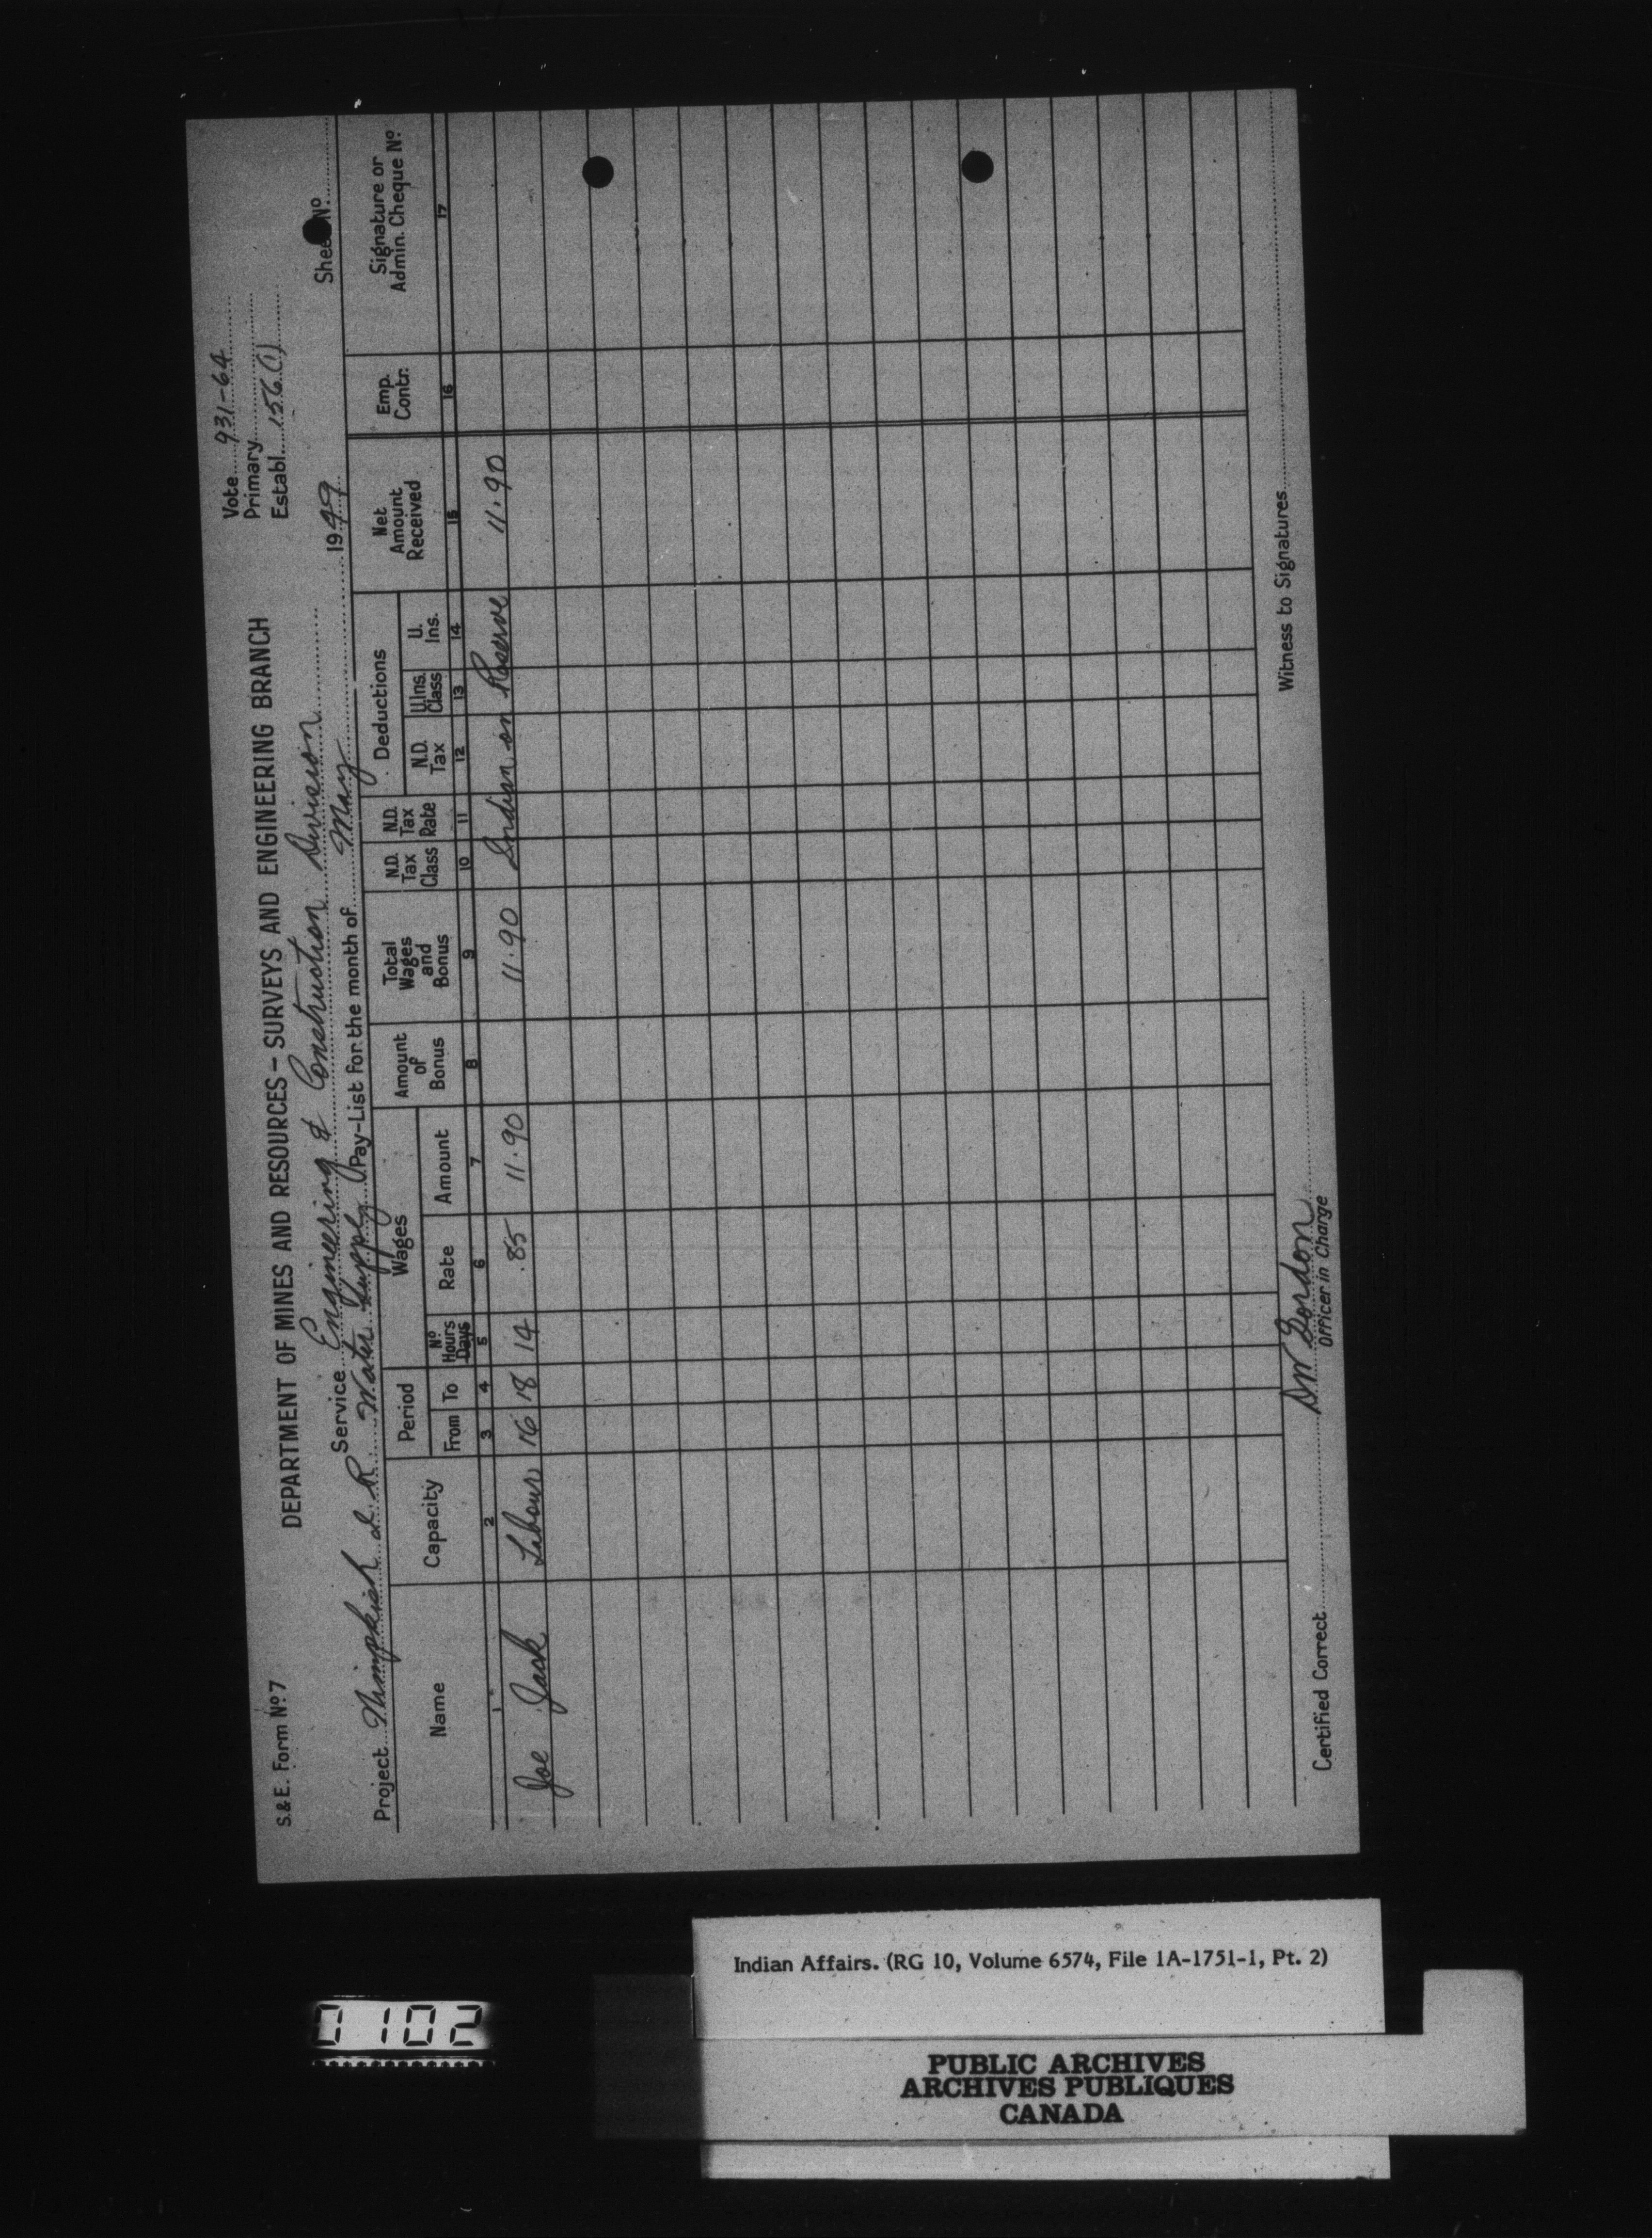 S.&E. Form Nº 7
Vote 931-64
Primary
Establ. 156 (1)
DEPARTMENT OF MINES AND RESOURCES – SURVEYS AND ENGINEERING BRANCH
Service Engineering & Construction Division
Sheet Nº
Project Nimpkish I. R. Water Supply Pay-List for the month of May 1949
Name Capacity Period Wages Amount of Bonus Total Wages and Bonus N.D. Tax Class N.D. Tax Rate Deductions Net Amount Received Emp. Contr. Signature or Admin. Cheque Nº
From To Nº Hours Days Rate Amount N.D. Tax U.Ins. Class U. Ins.
1 2 3 4 5 6 7 8 9 10 11 12 13 14 15 16 17
Joe Jack Labour 16 18 14 .85 11.90 11.90 Indian on Reserve 11.90
Certified Correct DW Gordon Witness to Signatures
Officer in Charge
Indian Affairs. (RG 10, Volume 6574, File 1A-1751-1, Pt. 2)
0102
PUBLIC ARCHIVES
ARCHIVES PUBLIQUES
CANADA